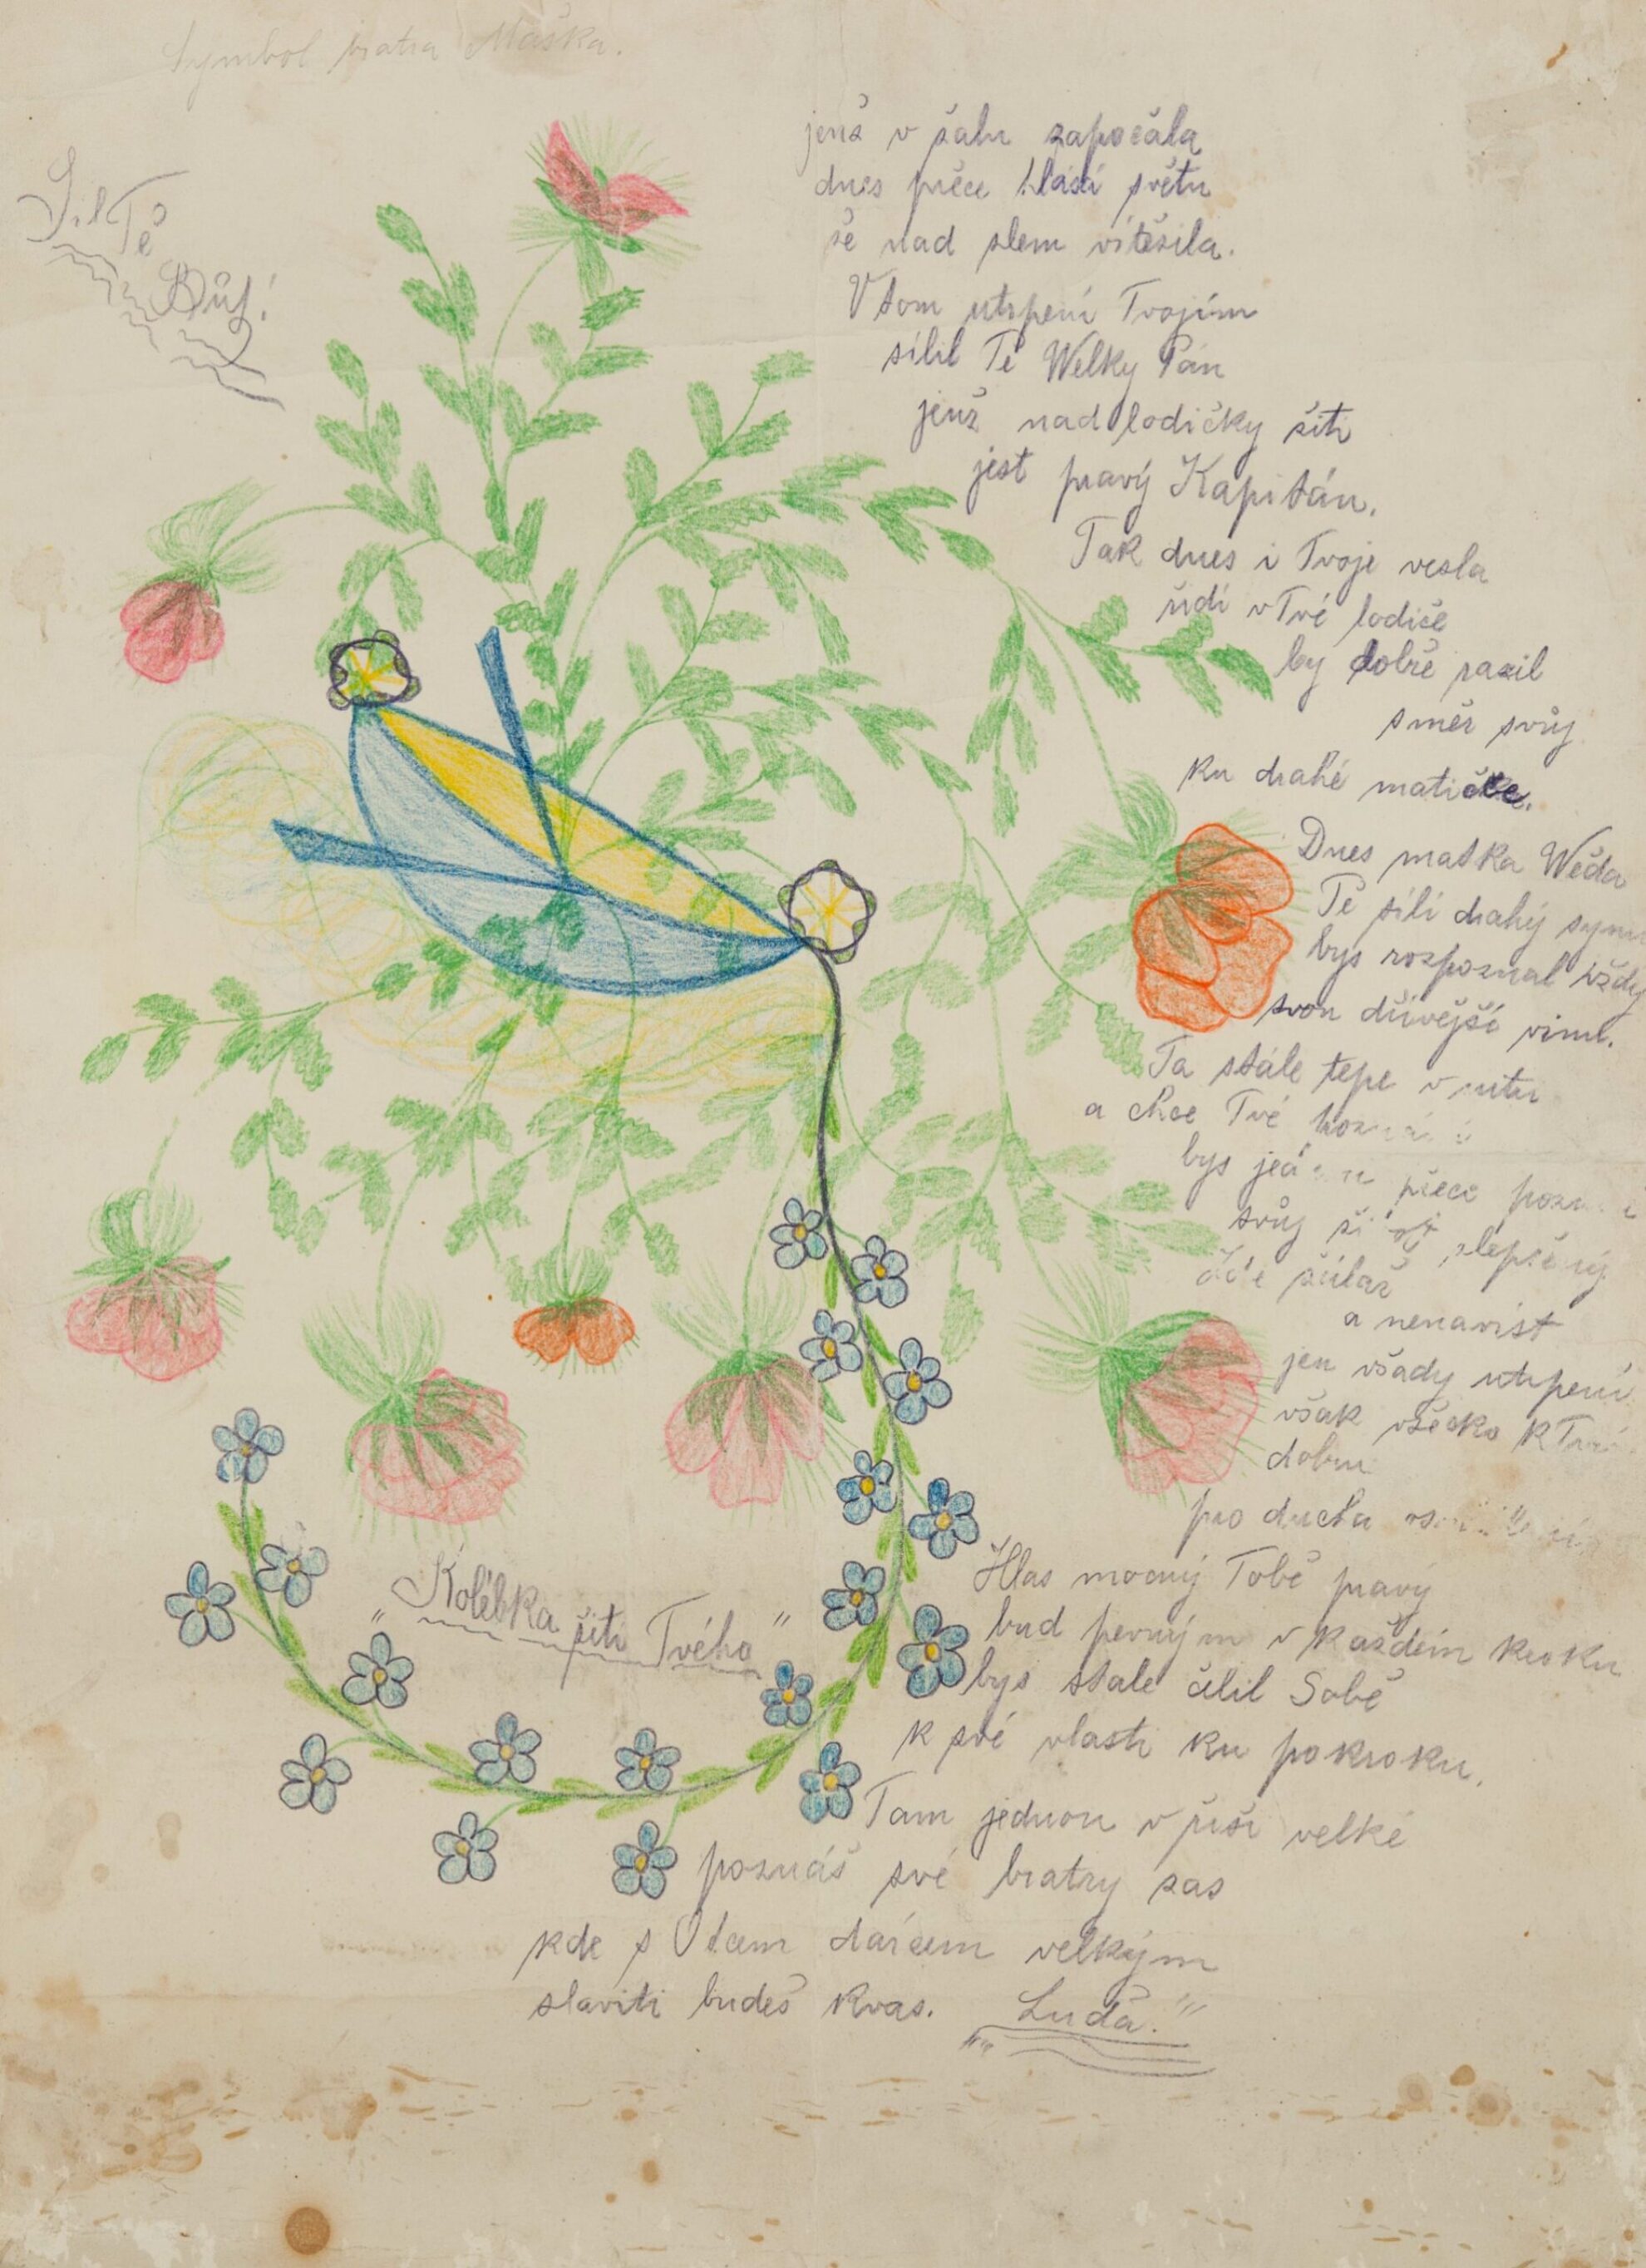 Symbol bratra Maška.
Sil Tě
Bůh!
jenž v žalu započala
dnes přece hlásá světu
že nad zlem vítězila.
V tom utrpení Tvojím
sílil Tě Welky Pán
jenž nad lodičky žití
jest pravý Kapitán.
Tak dnes i Tvoje vesla
řídí v Tvé lodice
by dobře razil
směr svůj
ku drahé matičce.
Dnes matka Węda
Tě sílí drahý synu
bys rozpoznal vždy
svou dřívější vinu.
Ta stále tepe v nitru
a chce Tvé
bys přece
svůj zlepšený
zůlař
a nenavist
jen všady utrpení
však všecko k
dobru
pro ducha
Hlas mocný Tobě pravý
bud pevným v každém kroku
bys stale čělil Sobě
k své vlasti ku pokroku.
Tam jednou v říši velké
poznáš své bratry zas
kde s Otcem dárcem velkým
slaviti budeš kvas. Luďa."
"Kolébka žiti Tvého"